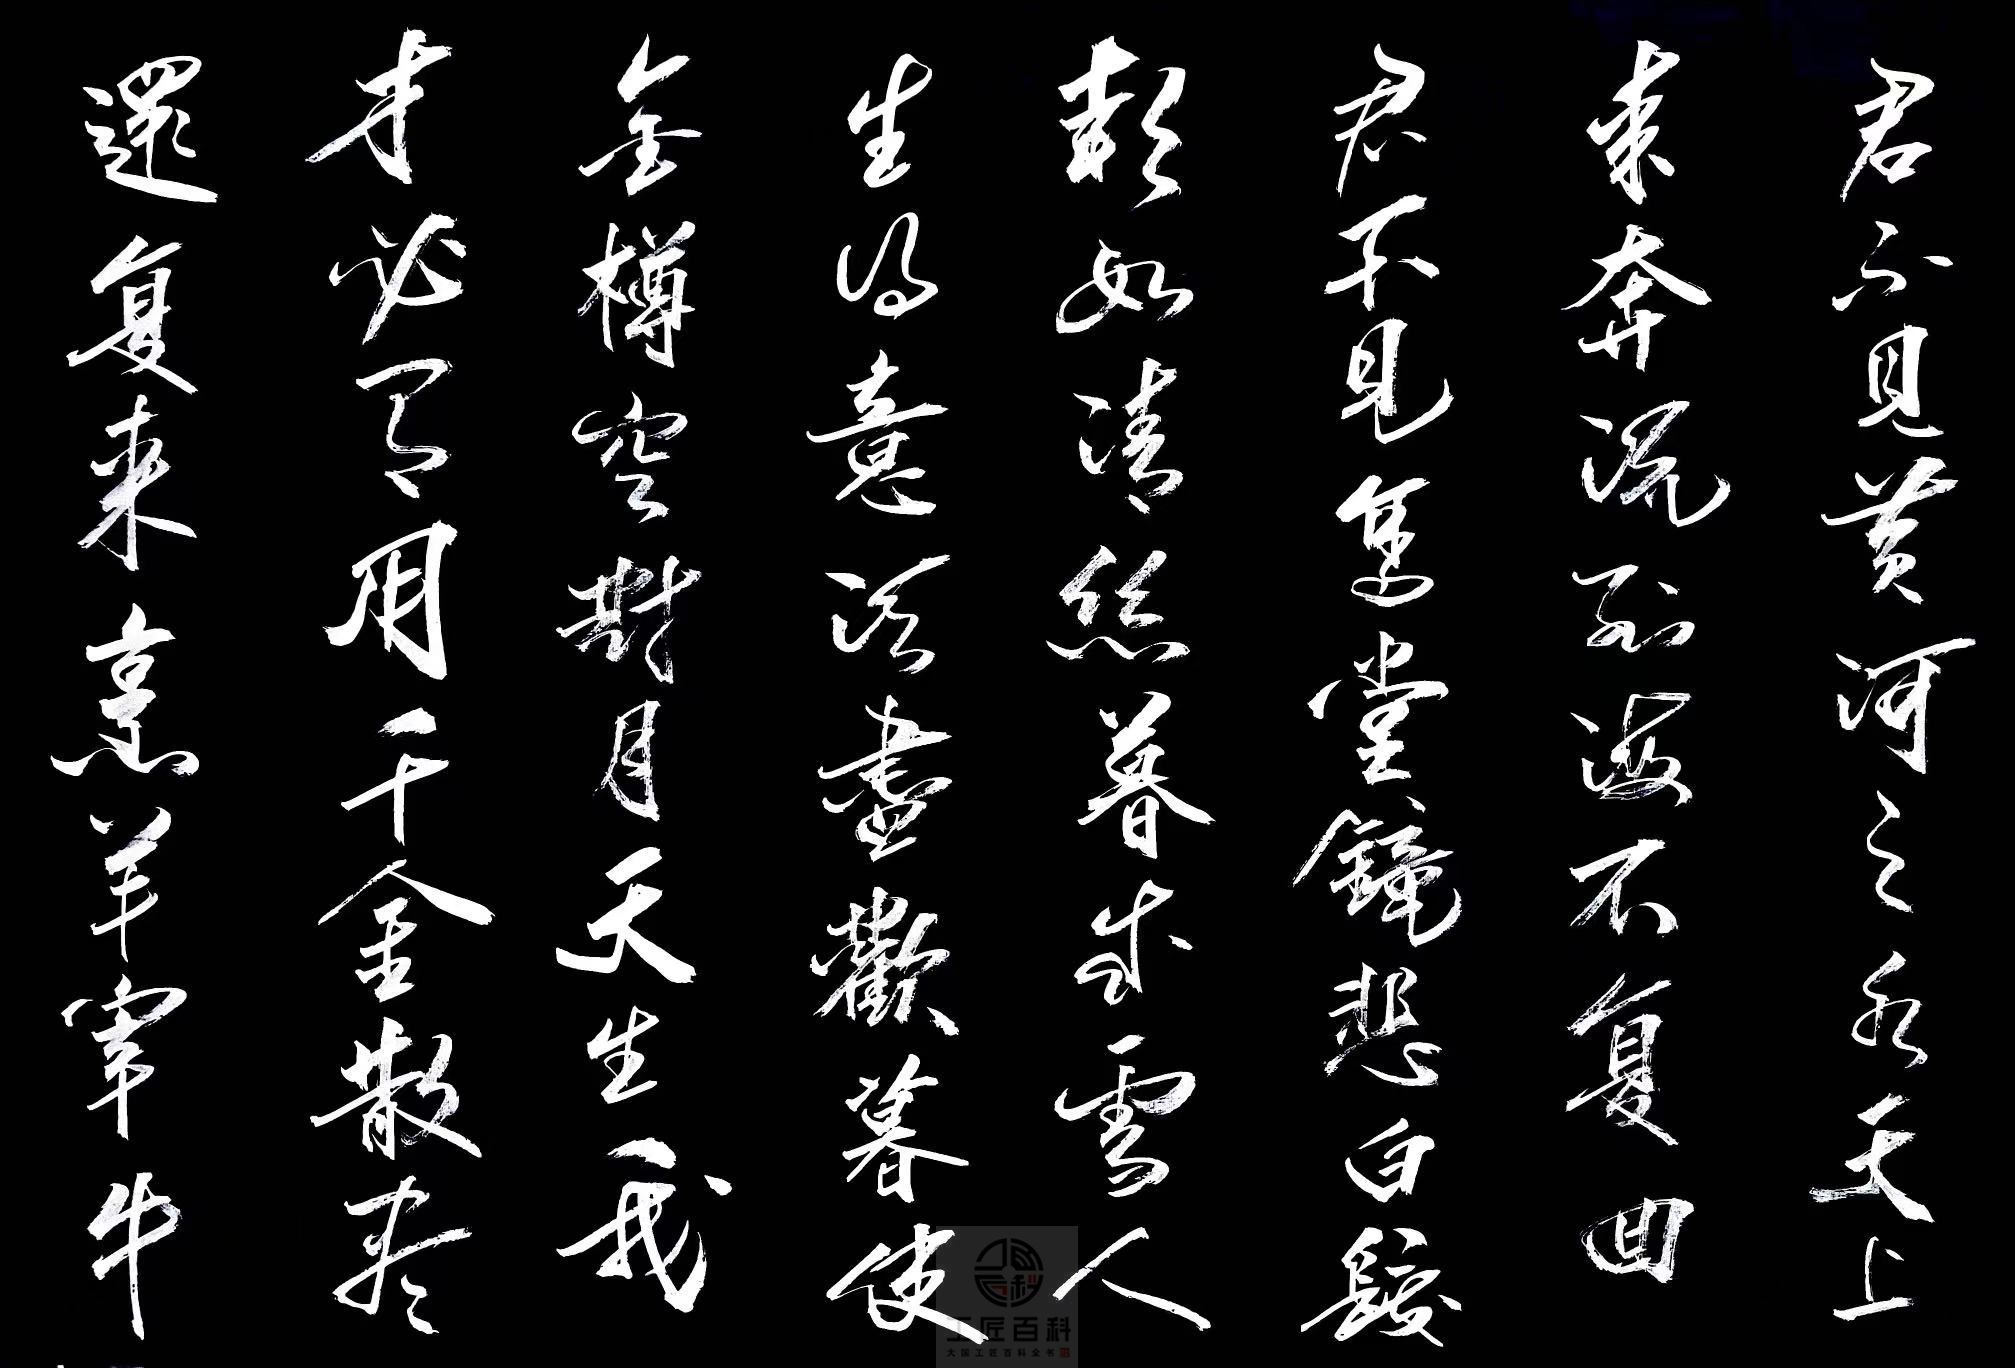 君不見黄河之水天上
来奔流到海不复回
君不見高堂鏡悲白髮
朝如清絲暮成雪人
生得意須盡歡暮使
金樽空對月天生我
才必有用千金散尽
還复来烹羊宰牛
工匠百科
大国工匠百科全书